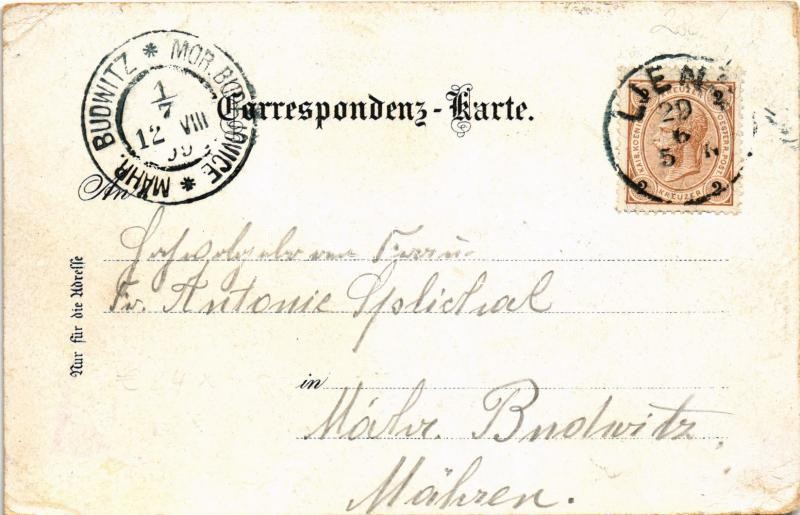 Correspondenz-Karte.
MÄHR. BUDWITZ * MOR. BUDĚJOVICE *
1/7
12 VIII
99
LIENZ
29
6
5 N
2 KREUZER 2
An
Hochwolgeboren Frau
Fr. Antonie Splichal
in
Mähr. Budwitz
Mähren.
Nur für die Adresse